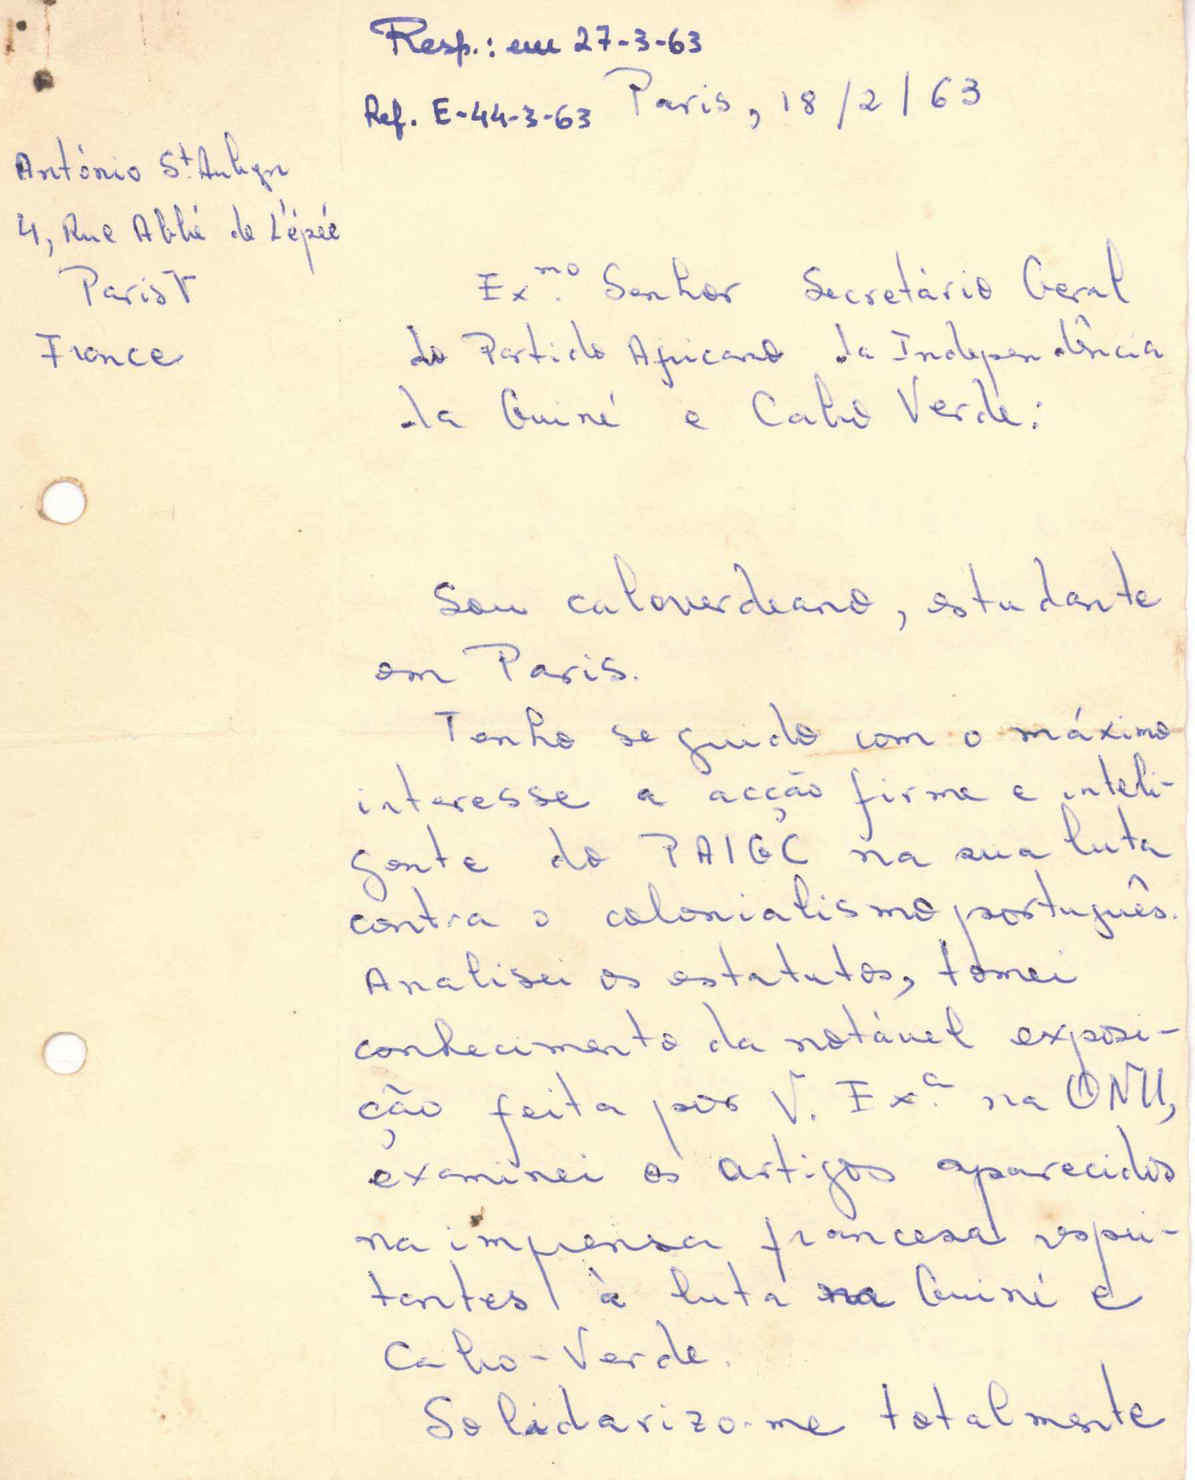 Resp.: em 27-3-63
Ref. E-44-3-63
Paris, 18/2/63
António St. Aubyn
4, Rue Abbé de L'épée
Paris V
France
Ex.mo Senhor Secretário Geral
do Partido Africano da Independência
da Guiné e Cabo Verde:
Sou caboverdeano, estudante
em Paris.
Tenho seguido com o máximo
interesse a acção firme e inteli-
gente do PAIGC na sua luta
contra o colonialismo português.
Analisei os estatutos, tomei
conhecimento da notável exposi-
ção feita por V. Ex.a na ONU,
examinei os artigos aparecidos
na imprensa francesa respei-
tantes à luta na Guiné e
Cabo-Verde.
Solidarizo-me totalmente